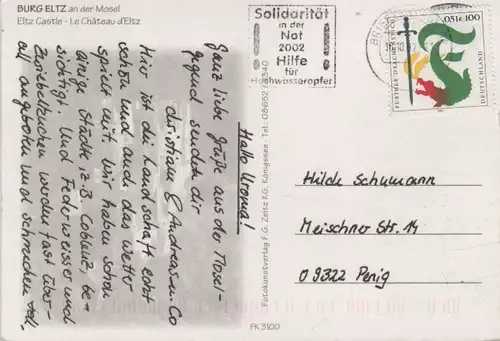 BURG ELTZ an der Mosel
Eltz Castle - Le Château d'Eltz
Solidarität
in der
Not
2002
Hilfe
für
Hochwasseropfer
0,51 € 1,00
FURTHER DRACHENSTICH
DEUTSCHLAND
Hallo Uroma!
Ganz liebe Grüße aus der Mosel-
gegend senden dir
Christiane & Andreas u. Co
Hier ist die Landschaft echt
schön und auch das Wetter
spielt mit. Wir haben schon
einige Städte z.B. Coblenz, be-
sichtigt. Und Federweisser und
Zwiebelkuchen werden fast über-
all angeboten und schmecken toll.
Fotokunstverlag F.G. Zeitz KG, Königssee · Tel.
PK 3100
Hilde Schumann
Meischner Str. 14
09322 Penig